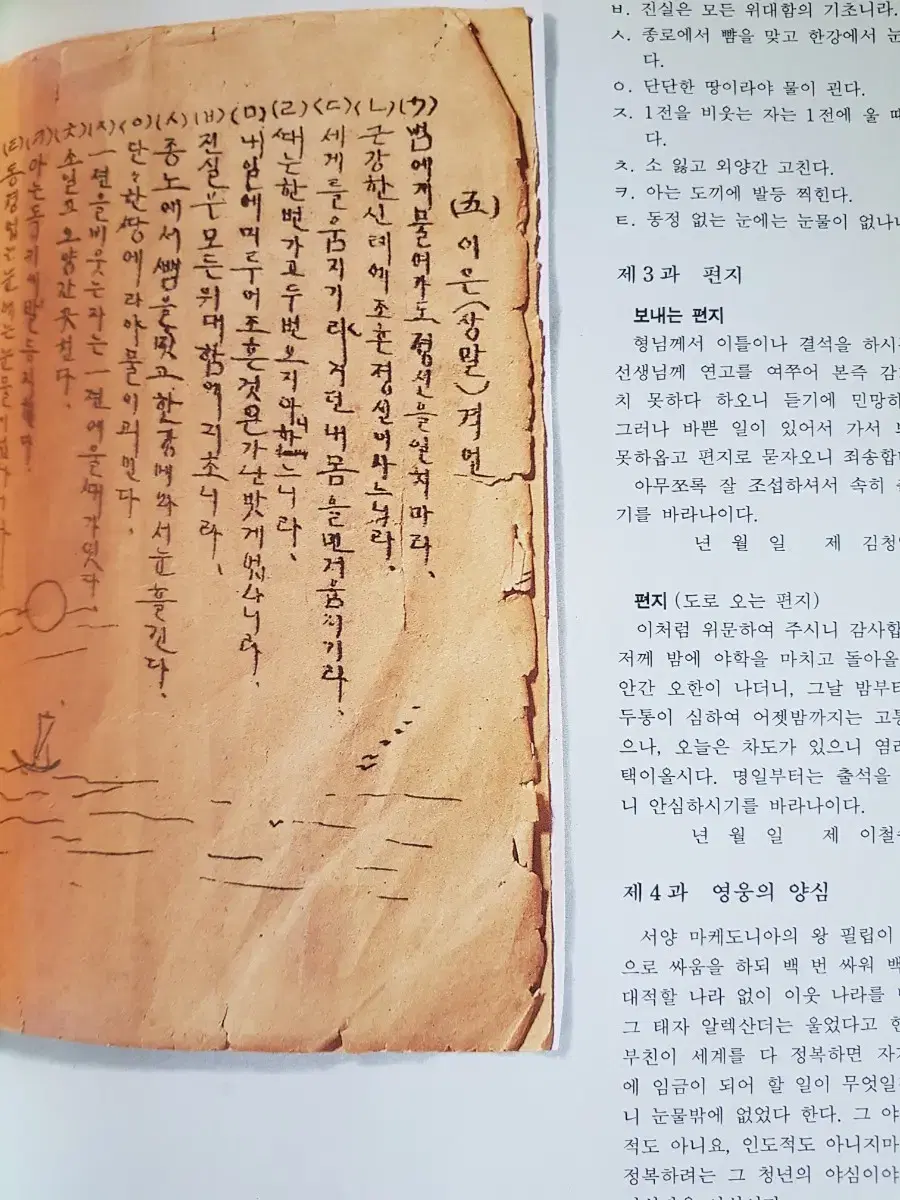 (五) 이은(상말) 격언
(ㄱ) 범에게물여가도정신을일치마라.
(ㄴ) 근강한신테에조흔정신이사느니라.
(ㄷ) 세게를움지기랴거던내몸을먼저움지기라.
(ㄹ) 때는한번가고두번오지아니하느니라.
(ㅁ) 내일에미루어조흔것은가난밧게업나니라.
(ㅂ) 진실은모든위대함에기초니라.
(ㅅ) 종노에서뺨을맞고한강에와서눈흘긴다.
(ㅇ) 단々한땅에라야물이괴인다.
(ㅈ) 一전을비웃는자는一전에울때가잇다.
(ㅊ) 소일코오양간곳친다.
(ㅋ) 아는독기에발등찍힌다!
(ㅌ) 동정업는눈에는눈물이업나니라
ㅂ. 진실은 모든 위대함의 기초니라.
ㅅ. 종로에서 뺨을 맞고 한강에서 눈
다.
ㅇ. 단단한 땅이라야 물이 괸다.
ㅈ. 1전을 비웃는 자는 1전에 울 때
다.
ㅊ. 소 잃고 외양간 고친다.
ㅋ. 아는 도끼에 발등 찍힌다.
ㅌ. 동정 없는 눈에는 눈물이 없나니
제 3 과 편지
보내는 편지
형님께서 이틀이나 결석을 하시
선생님께 연고를 여쭈어 본즉 감
치 못하다 하오니 듣기에 민망하
그러나 바쁜 일이 있어서 가서
못하옵고 편지로 묻자오니 죄송합
아무쪼록 잘 조섭하셔서 속히
기를 바라나이다.
년 월 일 제 김청
편지 (도로 오는 편지)
이처럼 위문하여 주시니 감사합
저께 밤에 야학을 마치고 돌아올
안간 오한이 나더니, 그날 밤부터
두통이 심하여 어젯밤까지는 고통
으나, 오늘은 차도가 있으니 염려
택이올시다. 명일부터는 출석을
니 안심하시기를 바라나이다.
년 월 일 제 이철
제 4 과 영웅의 양심
서양 마케도니아의 왕 필립이
으로 싸움을 하되 백 번 싸워 백
대적할 나라 없이 이웃 나라를
그 태자 알렉산더는 울었다고 한
부친이 세계를 다 정복하면 자기
에 임금이 되어 할 일이 무엇일
니 눈물밖에 없었다 한다. 그 야
적도 아니요, 인도적도 아니지마
정복하려는 그 청년의 야심이야